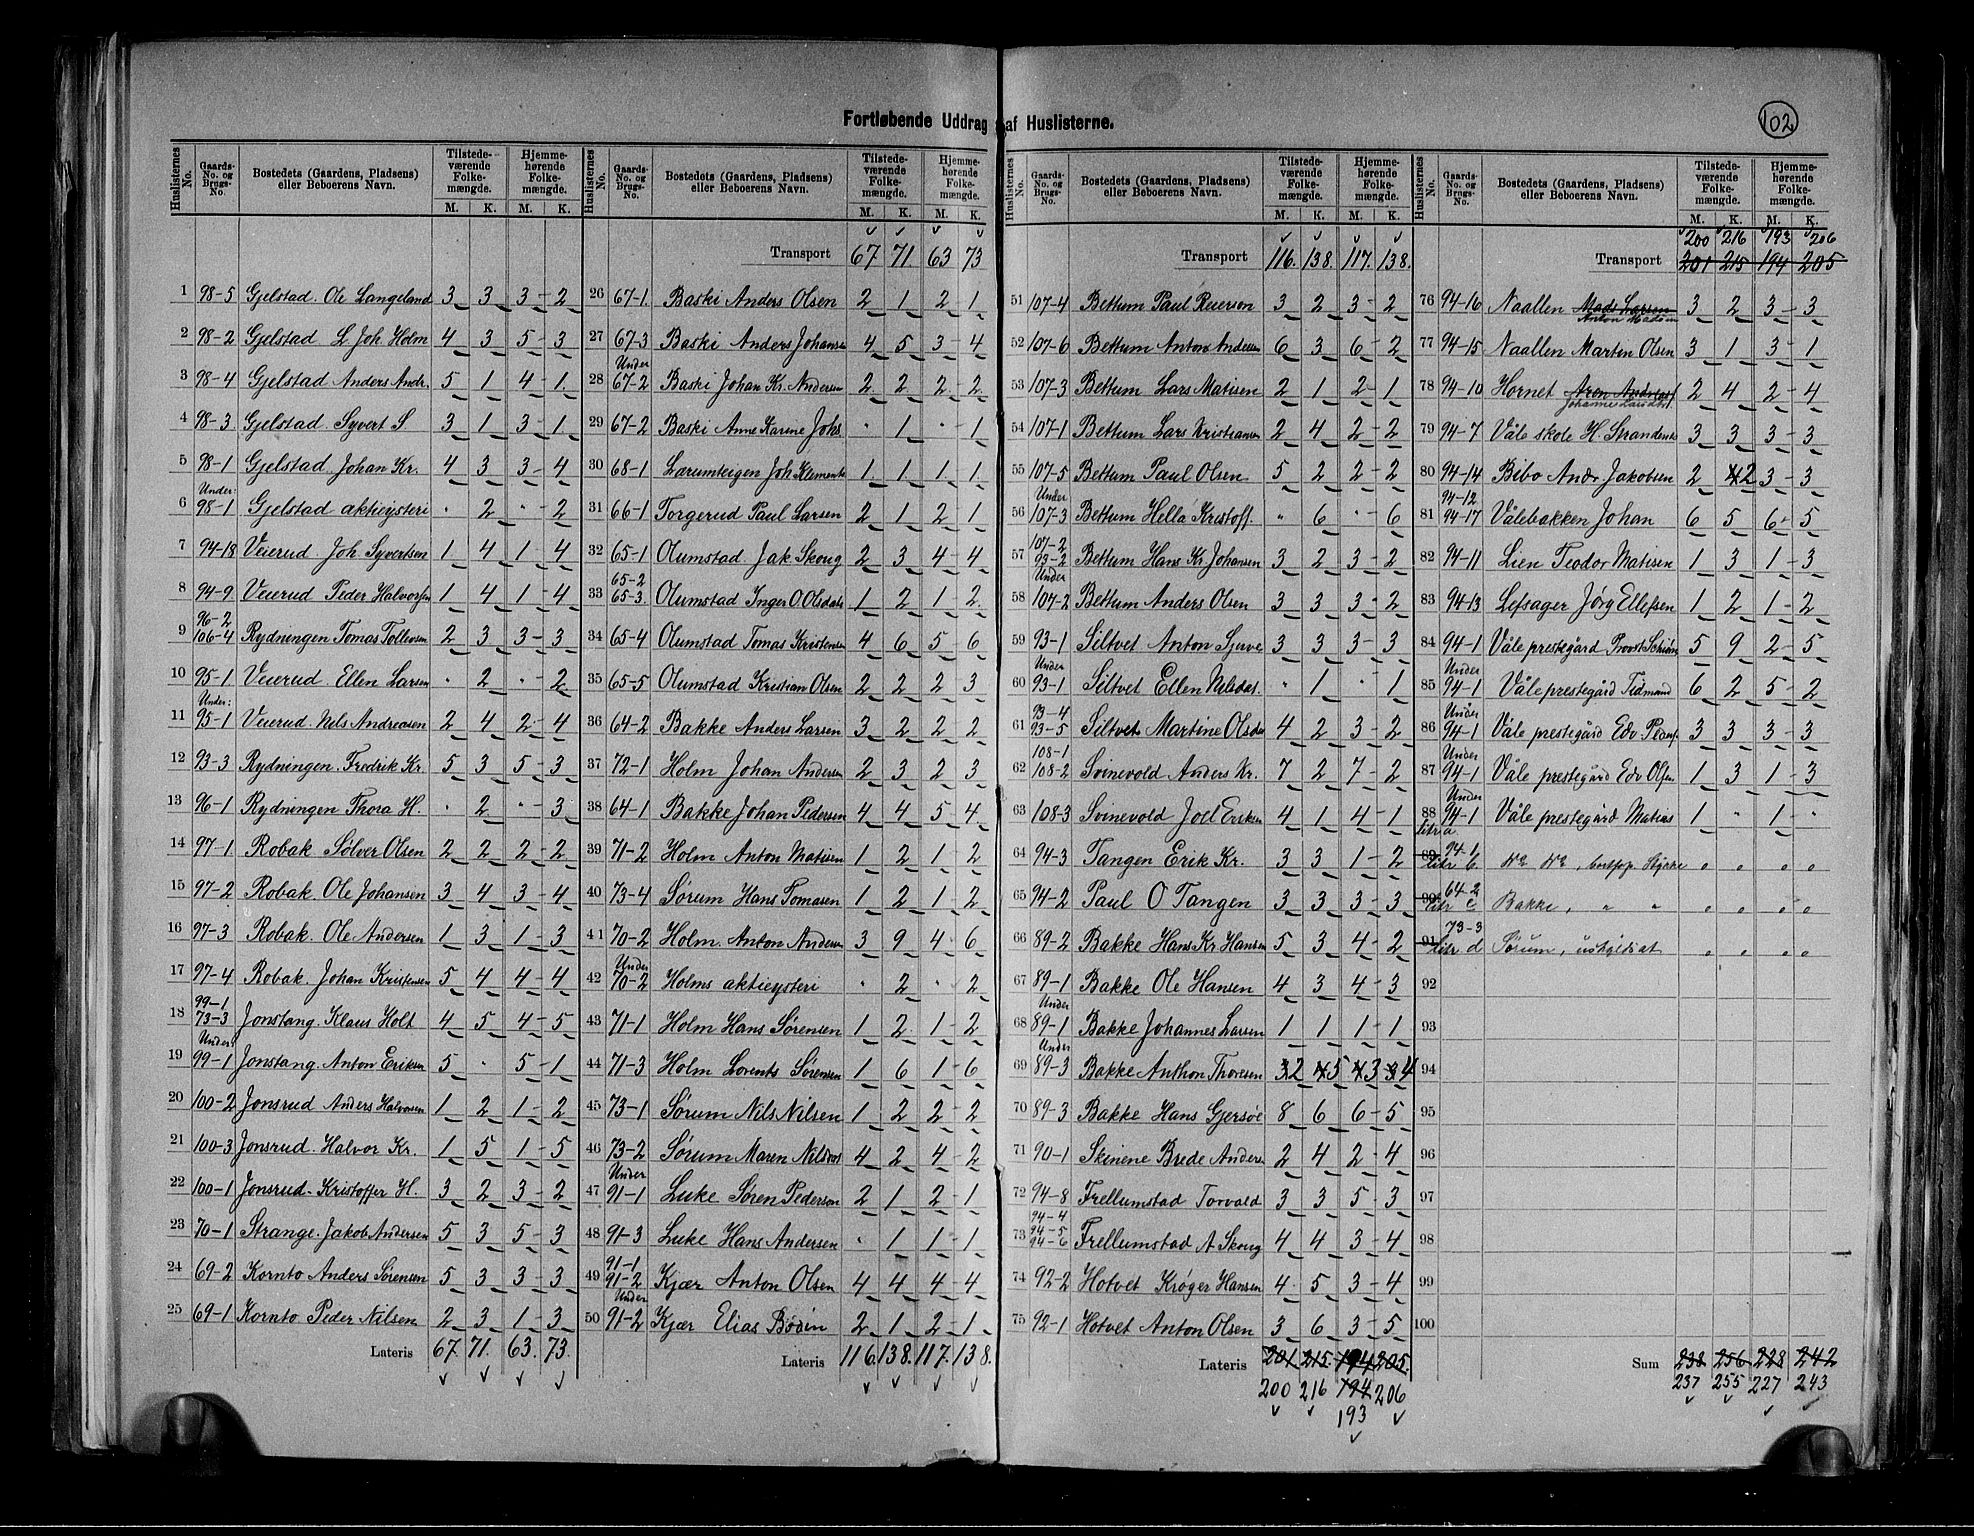 Fortløbende Uddrag af Huslisterne.
102
Huslisternes No. | Gaards-No. og Brugs-No. | Bostedets (Gaardens, Pladsens) eller Beboerens Navn. | Tilstedeværende Folkemængde. M. K. | Hjemmehørende Folkemængde. M. K.
1 98-5 Gjelstad. Ole Langeland 3 3 3-2
2 98-2 Gjelstad L Joh. Holm 4 3 5-3
3 98-4 Gjelstad Anders Andr. 5 1 4-1
4 98-3 Gjelstad. Syvert S 3 1 3-1
5 98-1 Gjelstad. Johan Kr. 4 3 3-4
6 Under: 98-1 Gjelstad aktieysteri " 2 "-2
7 94-18 Veierud Joh. Syvertsen 1 4 1-4
8 94-9 Veierud Peder Halvorsen 1 4 1-4
9 96-2 106-4 Rydningen Tomas Tollevsen 2 3 3-3
10 95-1 Veierud. Ellen Larsen " 2 "-2
11 Under: 95-1 Veierud. Nils Andreasen 2 4 2-4
12 93-3 Rydningen. Fredrik Kr. 5 3 5-3
13 96-1 Rydningen Thora H. " 2 "-3
14 97-1 Robak Sølver Olsen 2 2 2-2
15 97-2 Robak. Ole Johansen 3 4 3-4
16 97-3 Robak. Ole Andersen 1 3 1-3
17 97-4 Robak. Johan Kristensen 5 4 4-4
18 99-1 73-3 Jonstang. Klaus Holt 4 5 4-5
19 Under: 99-1 Jonstang. Anton Eriksen 5 " 5-1
20 100-2 Jonsrud Anders Halvorsen 1 2 1-2
21 100-3 Jonsrud. Halvor Kr. 1 5 1-5
22 100-1 Jonsrud. Kristoffer H. 3 2 3-2
23 70-1 Strange. Jakob Andersen 5 3 5-3
24 69-2 Kornto Anders Sørensen 5 3 3-3
25 69-1 Kornto Peder Nilsen 2 3 1-3
Lateris 67. 71. 63. 73.
Huslisternes No. | Gaards-No. og Brugs-No. | Bostedets (Gaardens, Pladsens) eller Beboerens Navn. | Tilstedeværende Folkemængde. M. K. | Hjemmehørende Folkemængde. M. K.
Transport 67 71 63 73
26 67-1. Baski Anders Olsen 2 1 2 1
27 67-3 Baski Anders Johansen 4 5 3-4
28 Under 67-2 Baski Johan Kr. Andersen 2 2 2-2
29 67-2 Baski Anne Karine Johs " 1 " 1
30 68-1 Lærumteigen Joh. Klements 1 1 1 1
31 66-1 Torgerud Paul Larsen 2 1 2 1
32 65-1 Olumstad Jak Skoug 2 3 4-4
33 65-2 65-3. Olumstad Inger O. Olsdat 1 2 1 2
34 65-4 Olumstad Tomas Kristensen 4 6 5 6
35 65-5 Olumstad Kristian Olsen 2 2 2 3
36 64-2 Bakke Anders Larsen 3 2 2 2
37 72-1 Holm Johan Andersen 2 3 2 3
38 64-1 Bakke Johan Pedersen 4 4 5 4
39 71-2 Holm Anton Matisen 1 2 1 2
40 73-4 Sørum Hans Tomasen 1 2 1 2
41 70-2 Holm. Anton Andersen 3 9 4 6
42 Under 70-2 Holms aktieysteri " 2 " 2
43 71-1 Holm Hans Sørensen 1 2 1-2
44 71-3 Holm Lorents Sørensen 1 6 1-6
45 73-1 Sørum Nils Nilsen 1 2 2-2
46 73-2 Sørum Maren Nilsdat 4 2 4-2
47 Under 91-1 Luke Søren Pederson 2 1 2-1
48 91-3 Luke Hans Andersen " 1 1-1
49 91-1 91-2 Kjær Anton Olsen 4 4 4-4
50 Under 91-2 Kjær Elias Bødin 2 1 2-1
Lateris 116. 138. 117. 138.
Huslisternes No. | Gaards-No. og Brugs-No. | Bostedets (Gaardens, Pladsens) eller Beboerens Navn. | Tilstedeværende Folkemængde. M. K. | Hjemmehørende Folkemængde. M. K.
Transport 116. 138. 117. 138.
51 107-4 Bettum Paul Reierson 3 2 3-2
52 107-6 Bettum Anton Andersen 6 3 6-2
53 107-3 Bettum Lars Matisen 2 1 2-1
54 107-1 Bettum Lars Kristiansen 2 4 2-2
55 107-5 Bettum Paul Olsen 5 2 2-2
56 Under 107-3 Bettum Hella Kristoff. " 6 "-6
57 107-2 93-2 Bettum Hans Kr. Johansen 3 2 3-2
58 Under 107-2 Bettum Anders Olsen 3 3 3-2
59 93-1 Siltvet Anton Sjuve 3 3 3-3
60 Under 93-1 Siltvet Ellen Nilsdat. " 1 " 1
61 93-4 93-5 Siltvet Martine Olsdat 4 2 3-2
62 108-1 108-2 Svinevold Anders Kr. 7 2 7-2
63 108-3 Svinevold Joel Eriksen 4 1 4-1
64 94-3 Tangen Erik Kr. 3 3 1-2
65 94-2 Paul O Tangen 3 3 3-3
66 89-2 Bakke Hans Kr Hansen 5 3 4-2
67 89-1 Bakke Ole Hansen 4 3 4-3
68 Under 89-1 Bakke Johannes Larsen 1 1 1-1
69 Under 89-3 Bakke Anthon Thoresen 3 2 4 5 4 3 3 4
70 89-3 Bakke Hans Gjersøe 8 6 6-5
71 90-1 Skinene Brede Anders 2 4 2-4
72 94-8 Frellumstad Torvald 3 3 5-3
73 94-4 94-5 94-6 Frellumstad A Skoug 4 4 3-4
74 92-2 Hotvet Krøger Hansen 4 5 3-4
75 92-1 Hotvet Anton Olsen 3 6 3-5
Lateris 201. 215. 194 205.
200 216 194 206
193
Huslisternes No. | Gaards-No. og Brugs-No. | Bostedets (Gaardens, Pladsens) eller Beboerens Navn. | Tilstedeværende Folkemængde. M. K. | Hjemmehørende Folkemængde. M. K.
200 216 193 206
Transport 201 215 194 205
76 94-16 Naallen Mads Larsen Anton Madsen 3 2 3-3
77 94-15 Naallen Marten Olsen 3 1 3-1
78 94-10 Hornet Aren Andreas Johanne Larsdat 2 4 2-4
79 94-7 Våle skole H. Strandents 3 3 3-3
80 94-14 Bibo Andr Jakobsen 2 4 2 3-3
81 94-12 94-17 Vålebakken Johan 6 5 6-5
82 94-11 Lien Teodor Matisen 1 3 1-3
83 94-13 Lefsager Jörg Ellefsen 1 2 1-2
84 94-1 Våle prestegård Provst 5 9 2-5
85 Under 94-1 Våle prestegård Tidmand 6 2 5-2
86 Under 94-1 Våle prestegård Edv 3 3 3-3
87 Under 94-1 Våle prestegård Edv Olsen 1 3 1-3
88 Under 94-1 Våle prestegård Matias 1 " 1 "
litr a.
89 94-1 litr b. " " " "
90 64-2 litr c Bakke, " " " " " "
91 73-3 litr d Sørum, " " " "
92
93
94
95
96
97
98
99
100
Sum 238 256 228 242
237 255 227 243